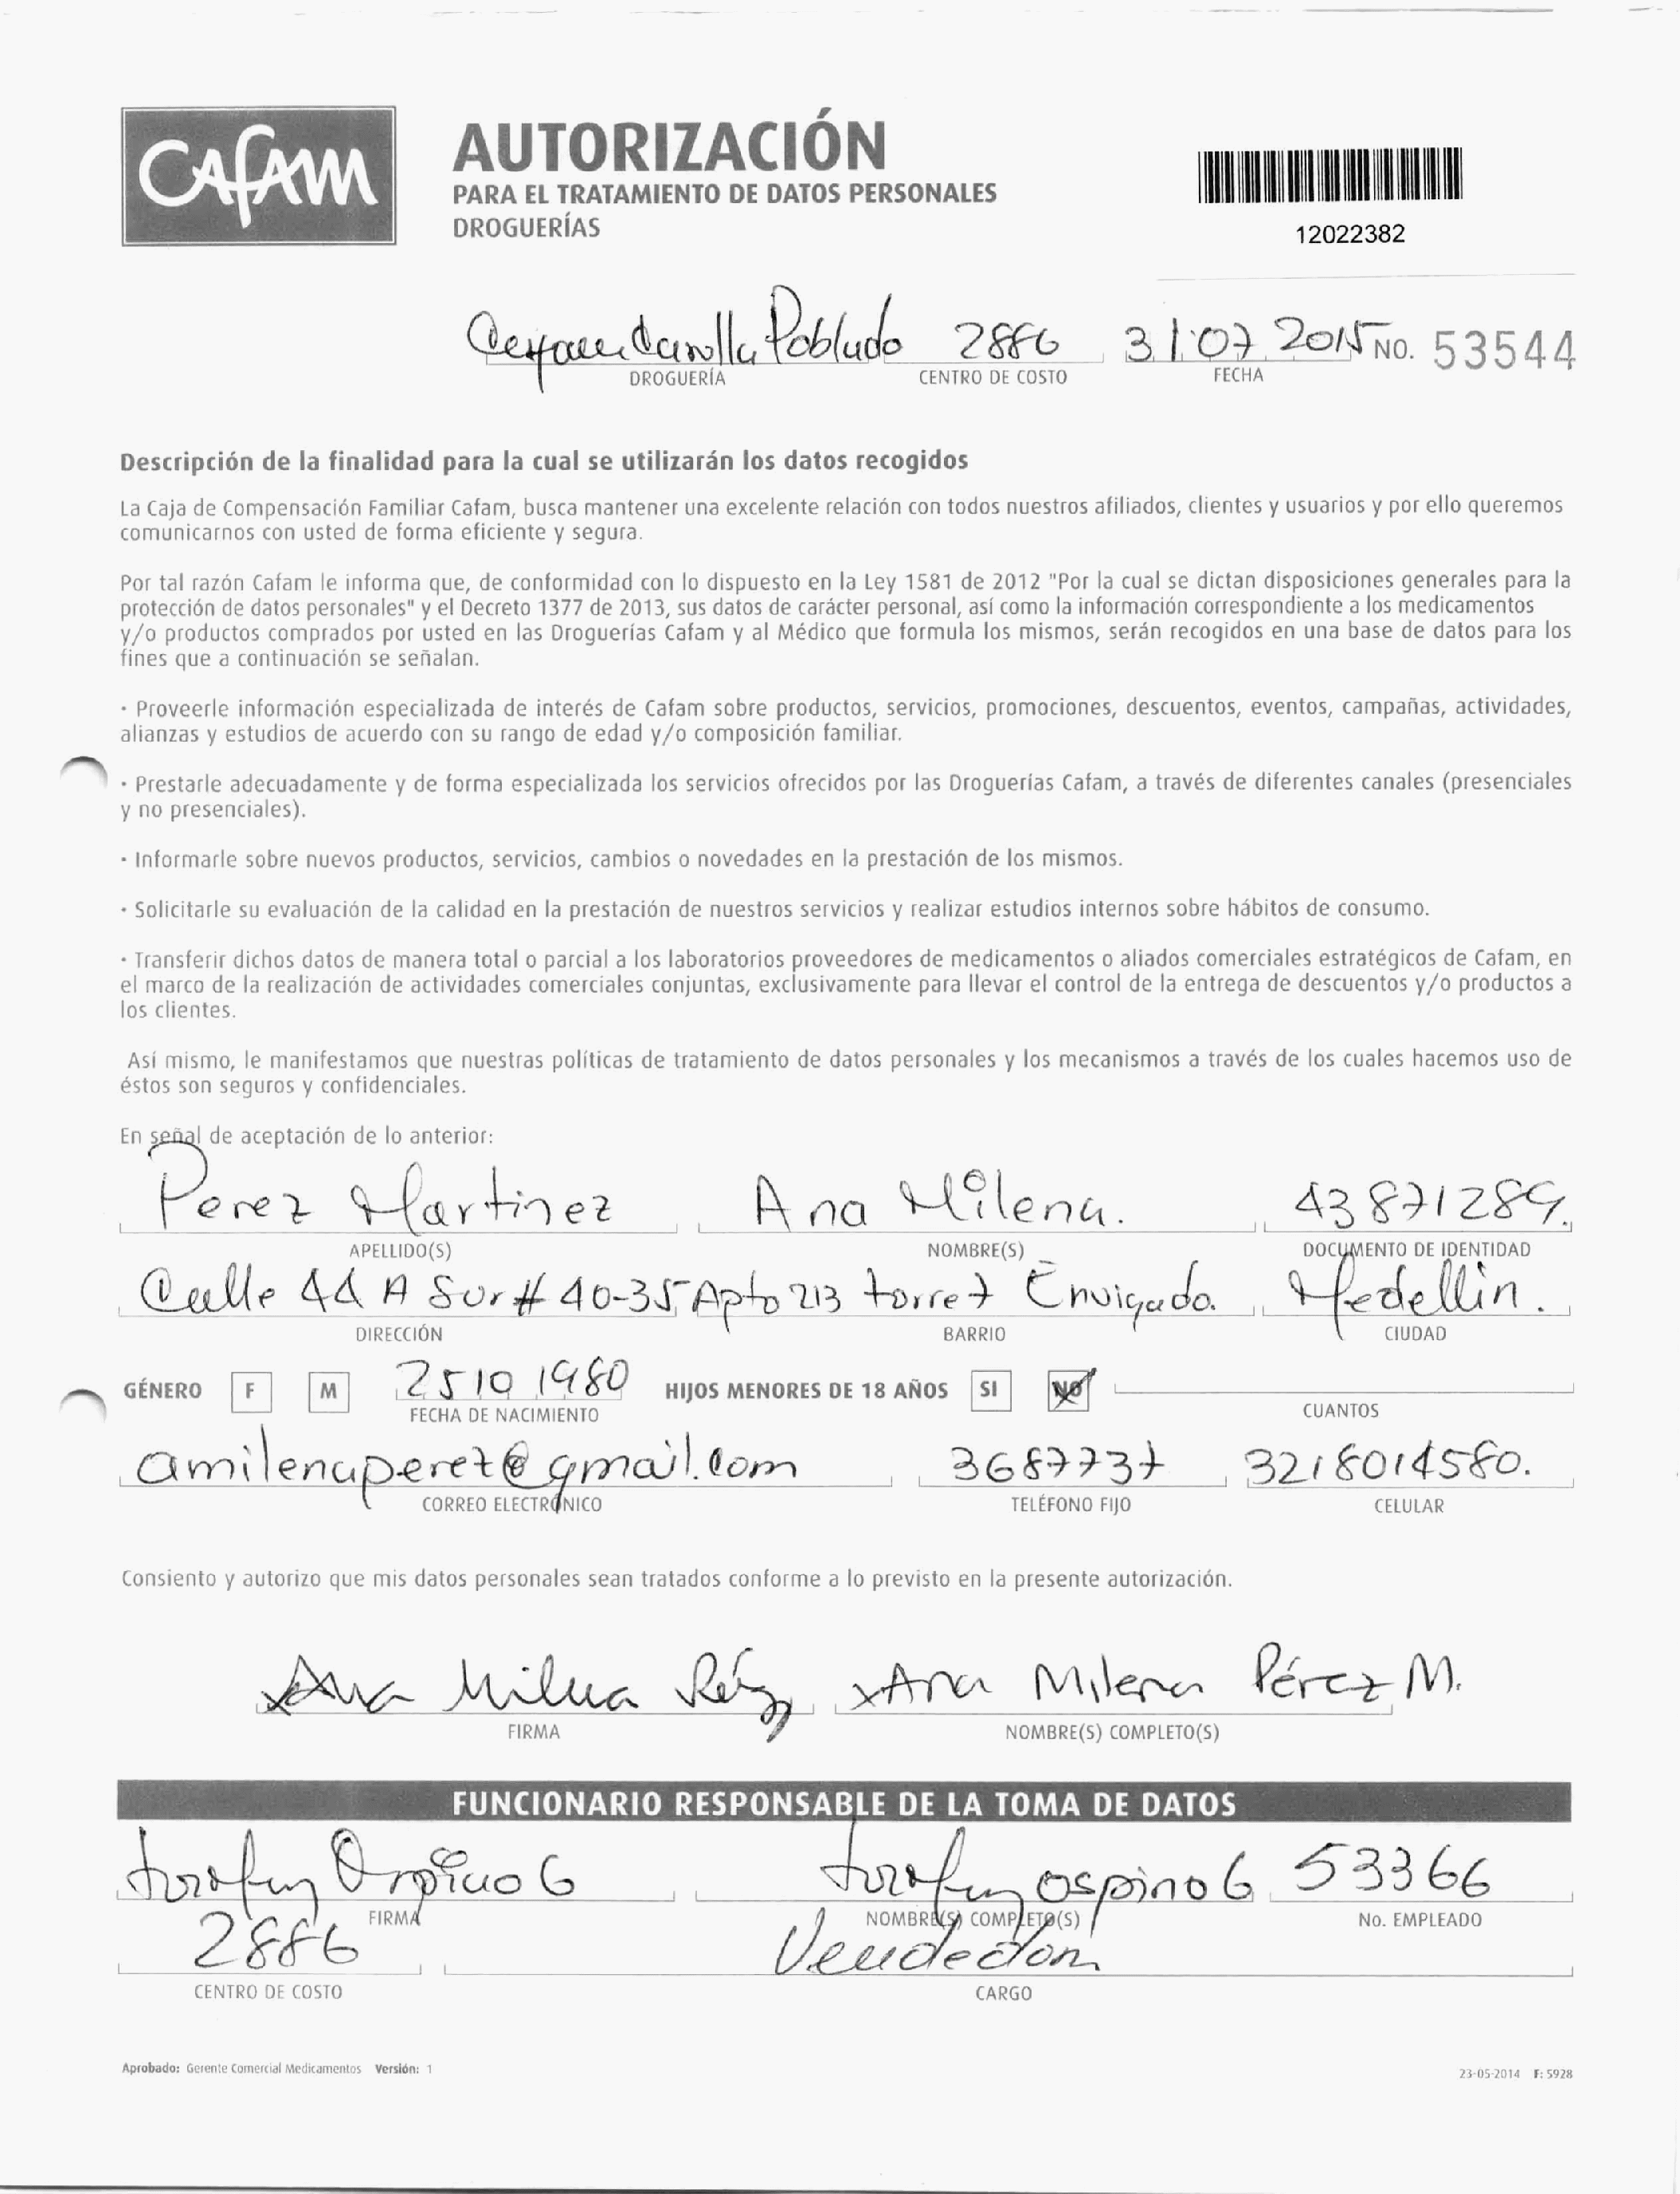 CAFAM
AUTORIZACIÓN
PARA EL TRATAMIENTO DE DATOS PERSONALES
DROGUERÍAS
12022382
Poblado 2886 31 07 2015 NO. 53544
DROGUERÍA CENTRO DE COSTO FECHA
Descripción de la finalidad para la cual se utilizarán los datos recogidos
La Caja de Compensación Familiar Cafam, busca mantener una excelente relación con todos nuestros afiliados, clientes y usuarios y por ello queremos
comunicarnos con usted de forma eficiente y segura.
Por tal razón Cafam le informa que, de conformidad con lo dispuesto en la Ley 1581 de 2012 "Por la cual se dictan disposiciones generales para la
protección de datos personales" y el Decreto 1377 de 2013, sus datos de carácter personal, así como la información correspondiente a los medicamentos
y/o productos comprados por usted en las Droguerías Cafam y al Médico que formula los mismos, serán recogidos en una base de datos para los
fines que a continuación se señalan.
· Proveerle información especializada de interés de Cafam sobre productos, servicios, promociones, descuentos, eventos, campañas, actividades,
alianzas y estudios de acuerdo con su rango de edad y/o composición familiar.
· Prestarle adecuadamente y de forma especializada los servicios ofrecidos por las Droguerías Cafam, a través de diferentes canales (presenciales
y no presenciales).
· Informarle sobre nuevos productos, servicios, cambios o novedades en la prestación de los mismos.
· Solicitarle su evaluación de la calidad en la prestación de nuestros servicios y realizar estudios internos sobre hábitos de consumo.
· Transferir dichos datos de manera total o parcial a los laboratorios proveedores de medicamentos o aliados comerciales estratégicos de Cafam, en
el marco de la realización de actividades comerciales conjuntas, exclusivamente para llevar el control de la entrega de descuentos y/o productos a
los clientes.
Así mismo, le manifestamos que nuestras políticas de tratamiento de datos personales y los mecanismos a través de los cuales hacemos uso de
éstos son seguros y confidenciales.
En señal de aceptación de lo anterior:
Perez Martinez Ana Milena. 43871289.
APELLIDO(S) NOMBRE(S) DOCUMENTO DE IDENTIDAD
Calle 44 A Sur # 40-35 Apto 213 torre 7 Envigado. Medellin.
DIRECCIÓN BARRIO CIUDAD
GÉNERO F M 25 10 1980 HIJOS MENORES DE 18 AÑOS SI NO
FECHA DE NACIMIENTO CUANTOS
amilenaperez@gmail.com 3687737 3218014580.
CORREO ELECTRÓNICO TELÉFONO FIJO CELULAR
Consiento y autorizo que mis datos personales sean tratados conforme a lo previsto en la presente autorización.
Ana Milena Pérez xAna Milena Pérez M.
FIRMA NOMBRE(S) COMPLETO(S)
FUNCIONARIO RESPONSABLE DE LA TOMA DE DATOS
Ospino G ospino G 53366
FIRMA NOMBRE(S) COMPLETO(S) No. EMPLEADO
2886 Vendedor
CENTRO DE COSTO CARGO
Aprobado: Gerente Comercial Medicamentos Versión: 1
23-05-2014 F: 5928